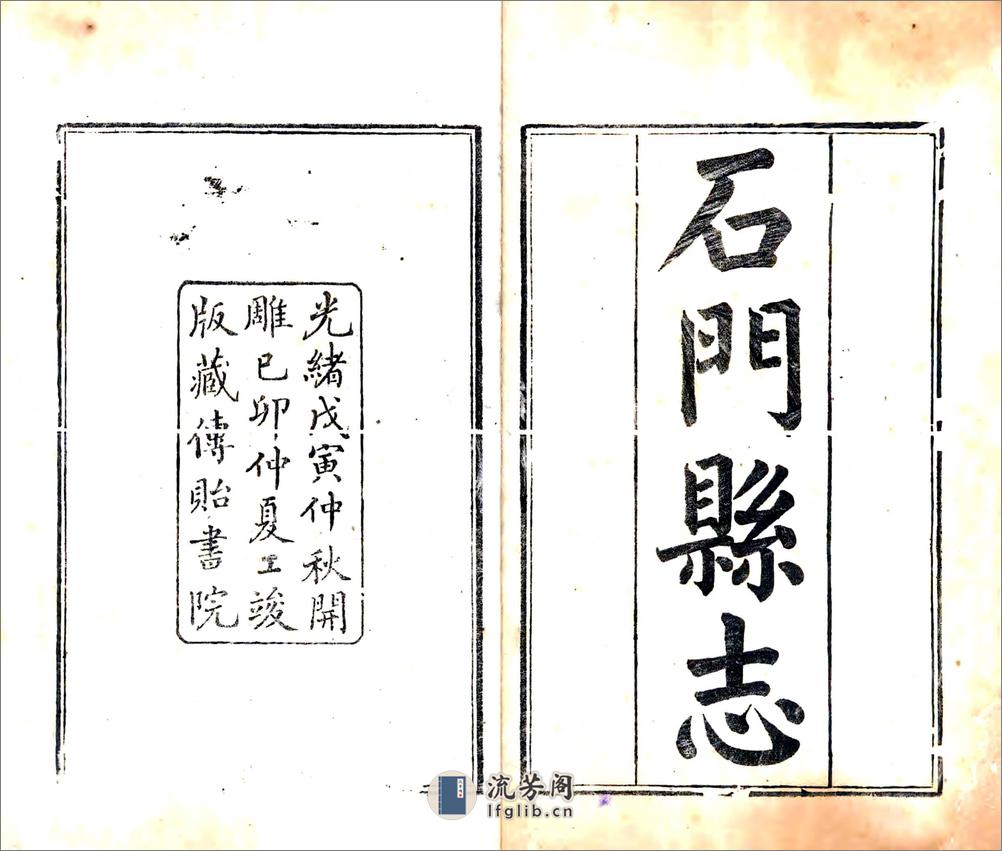 石門縣志
光緒戊寅仲秋開
雕已卯仲夏工竣
版藏傳貽書院
流芳阁
lfglib.cn